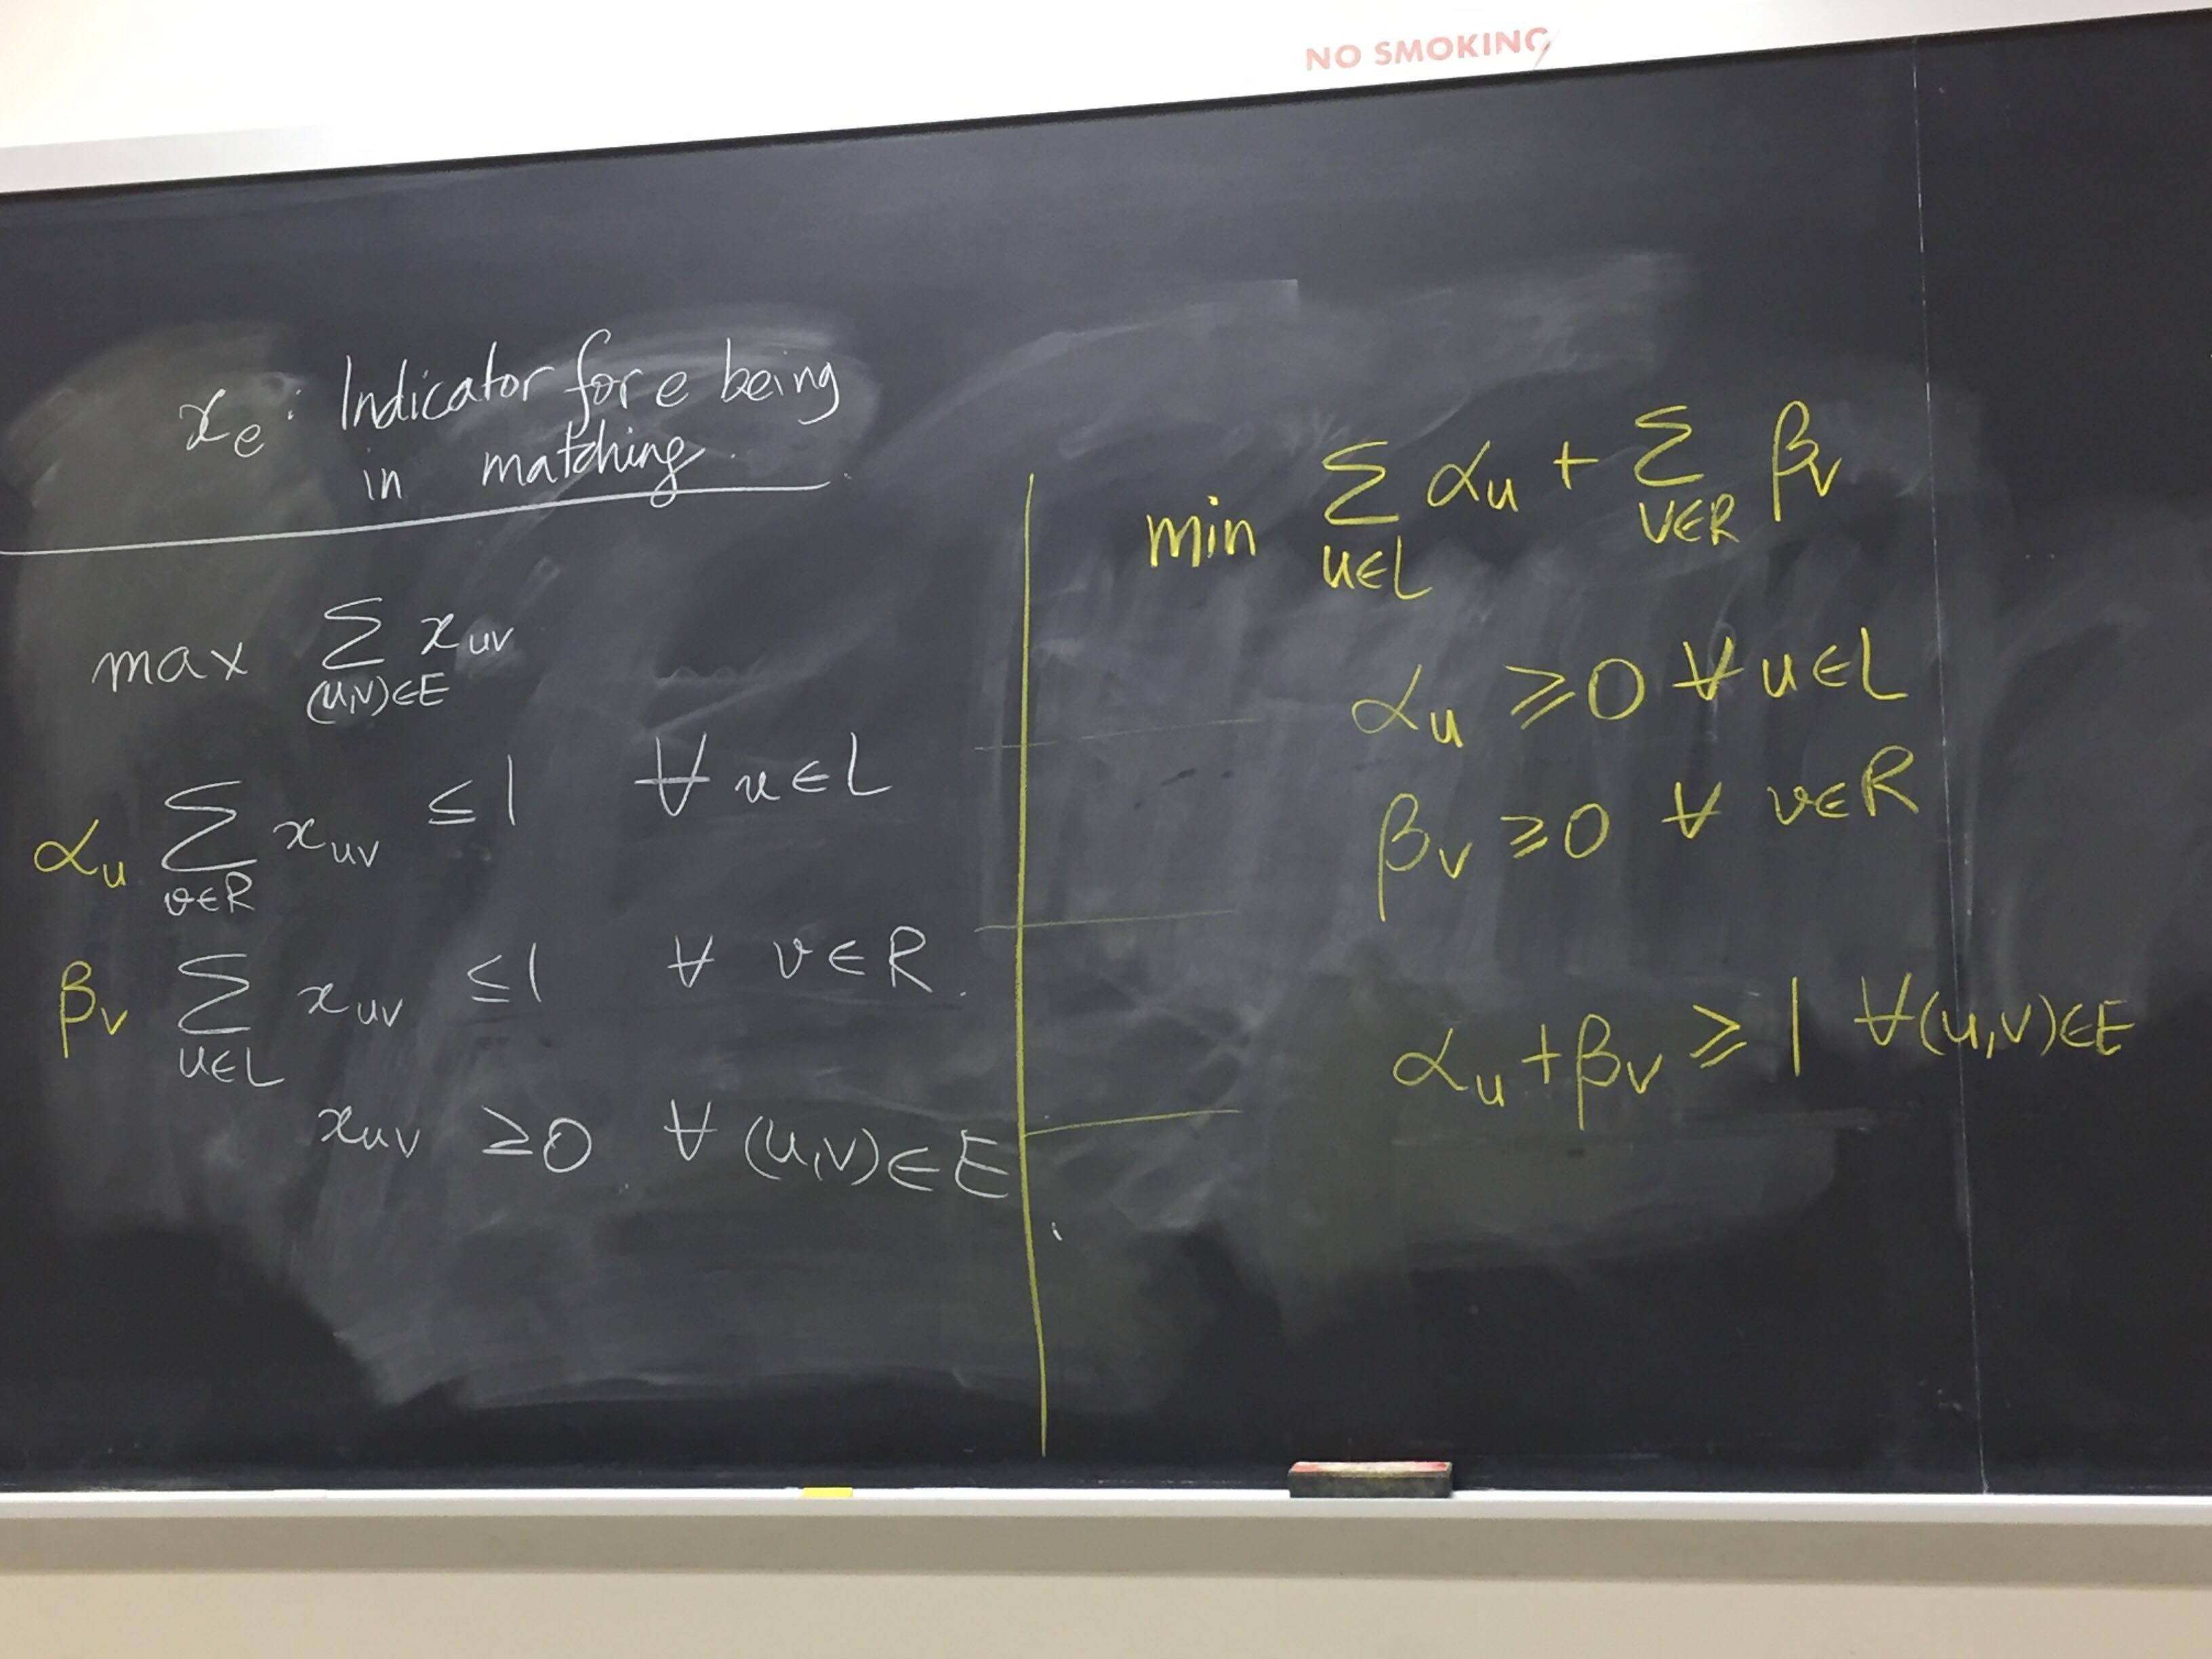 NO SMOKING
xₑ: Indicator for e being
in matching.
max ∑_{(u,v)∈E} x_{uv}
α_u ∑_{v∈R} x_{uv} ≤ 1 ∀ u∈L
β_v ∑_{u∈L} x_{uv} ≤ 1 ∀ v∈R.
x_{uv} ≥ 0 ∀ (u,v)∈E
min ∑_{u∈L} α_u + ∑_{v∈R} β_v
α_u ⩾ 0 ∀ u∈L
β_v ⩾ 0 ∀ v∈R
α_u + β_v ⩾ 1 ∀(u,v)∈E